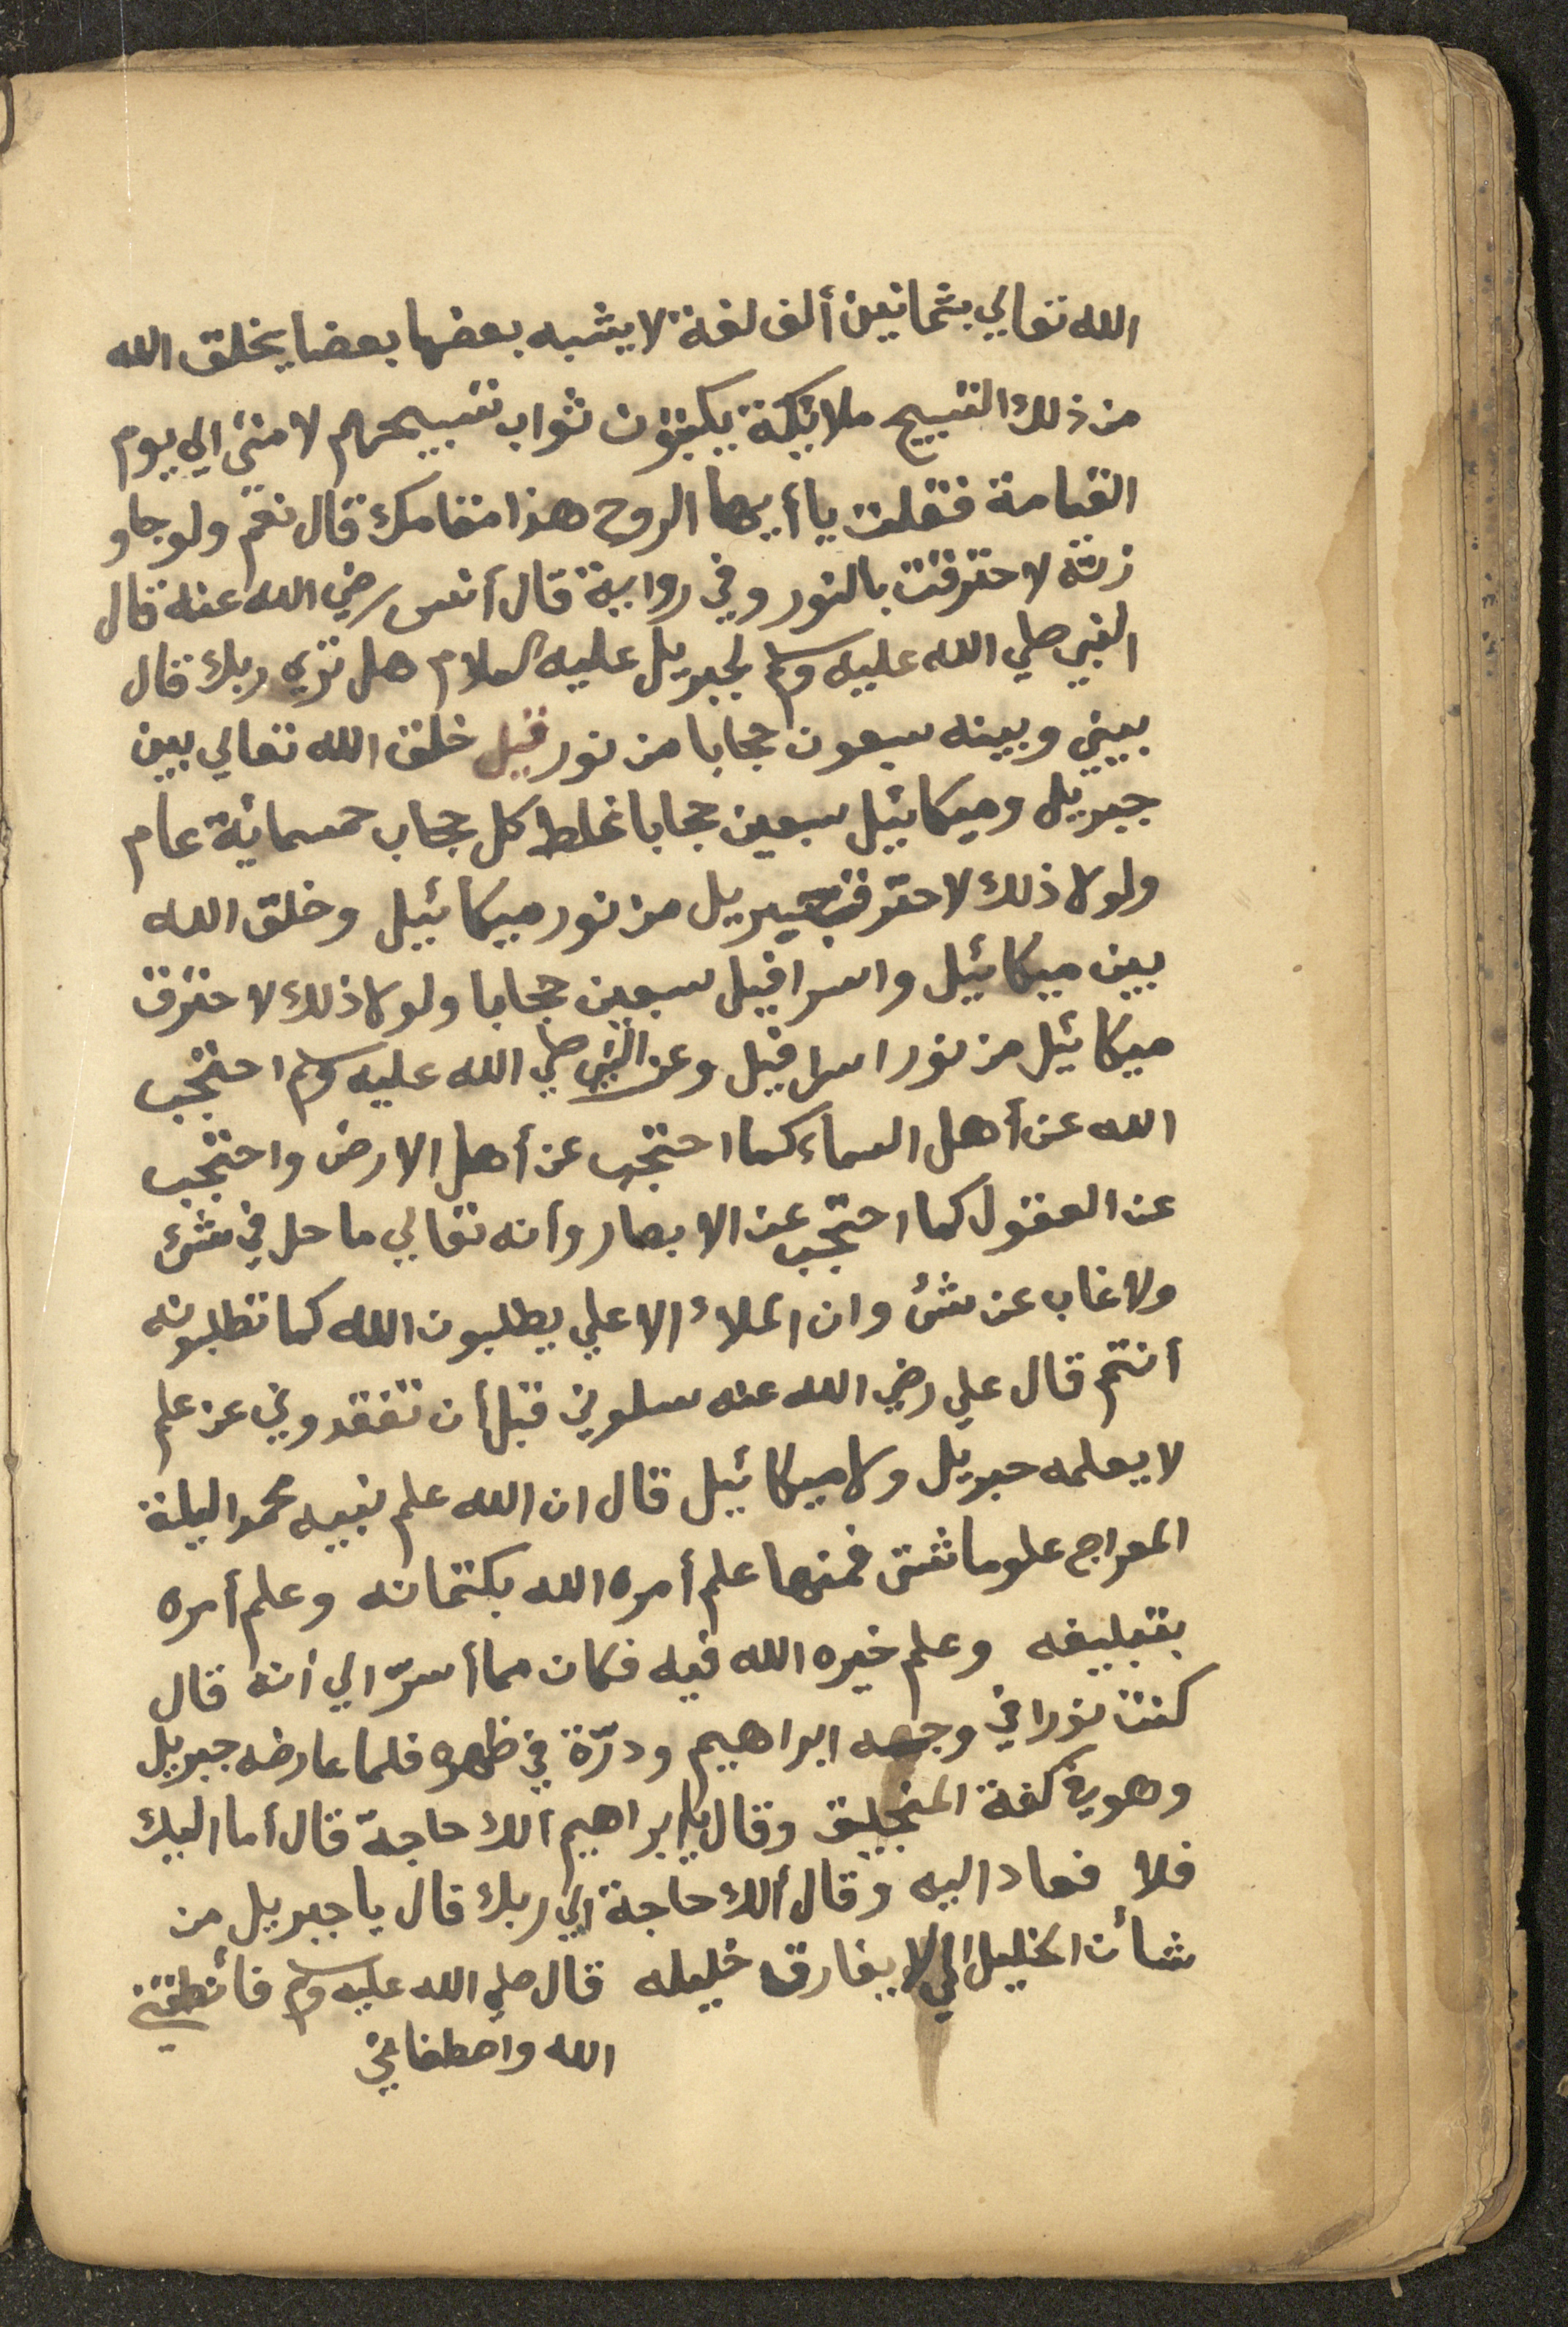 الله تعالي بثمانين ألف لغة لا يشبه بعضها بعضا يخلق الله
من ذلك التسبيح ملائكة يكتبون ثواب تسبيحهم لامتي الي يوم
القيامة فقلت يا أيها الروح هذا مقامك قال نعم ولو جاو
زته لاحترقت بالنور وفي رواية قال أنس رضي الله عنه قال
النبي صلي الله عليه وسلم لجبريل عليه السلام هل تري ربك قال
بيني وبينه سبعون حجابا من نور قيل خلق الله تعالي بين
جبريل وميكائيل سبعين حجابا غلط كل حجاب خمسمائة عام
ولولا ذلك لاحترقت جبريل من نور ميكائيل وخلق الله
بين ميكائيل واسرافيل سبعين حجابا ولولا ذلك لاحترق
ميكائيل من نور اسرافيل وعن النبي صلي الله عليه وسلم احتجب
الله عن أهل السماء كما احتجب عن أهل الارض واحتجب
عن العقول كما احتجب عن الابصار وأنه تعالي ما حل في شئ
ولا غاب عن شئ وان الملأ الاعلي يطلبون الله كما تطلبونه
أنتم قال علي رضي الله عنه سلوني قبل أن تفقدوني عن علم
لا يعلمه جبريل ولا ميكائيل قال ان الله علم نبيه محمدا ليلة
المعراج علوما شتى فمنها علم أمره الله بكتمانه وعلم أمره
بتبليغه وعلم خيره الله فيه فكان مما أسرّ الي أنه قال
كنت نورا في وجهه ابراهيم ودرّة في ظهره فلما عارضه جبريل
وهو في كفة المنجليق وقال يا ابراهيم ألك حاجة قال أما اليك
فلا فعاد اليه وقال ألك حاجة الي ربك قال يا جبريل من
شأن الخليل الي لا يفارق خليله قال صلي الله عليه وسلم فأنطقني
الله واصطفاني